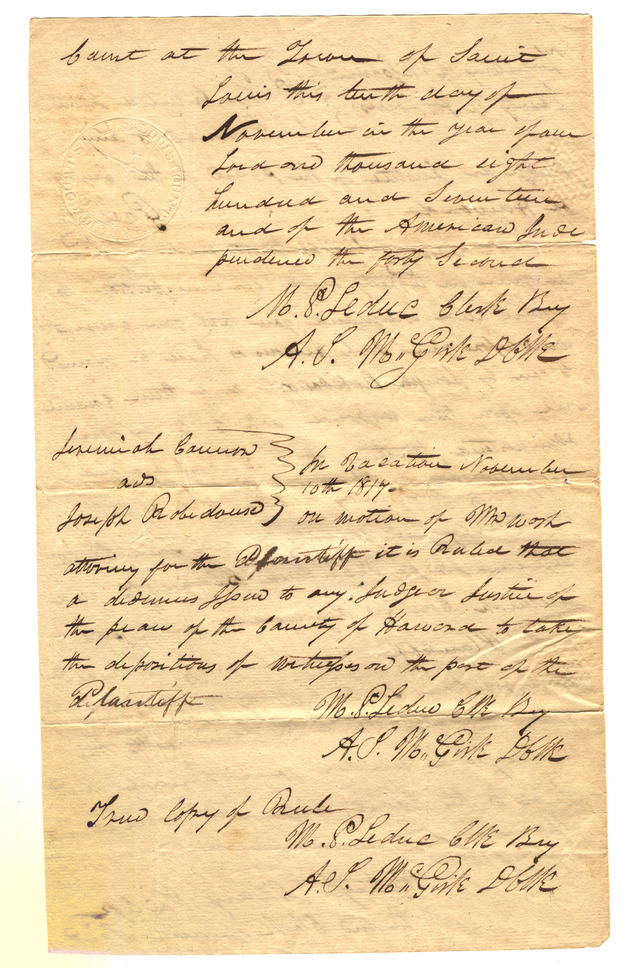 Court at the Town of Saint
Louis this tenth day of
November in the year of our
Lord one thousand eight
hundred and Seventeen
and of the American Inde
pendence the forty Second
M. P. Leduc Clerk By
A. S. McGirk DClk
Jeremiah Cannon
ads
Joseph Robedouse
In Vacation November
10th 1817.
on motion of Mr Wash
attorney for the Plaintiff it is Ruled that
a dedimus Issue to any Judge or Justice of
the peace of the County of Howard to take
the depositions of witnesses on the part of the
Plaintiff
M. P. Leduc Clk By
A. S. McGirk DClk
True Copy of Rule
M. P. Leduc Clk By
A. S. McGirk DClk